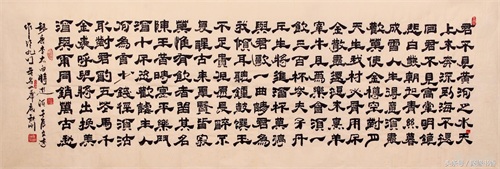 君不見黃河之水天
上來奔流到海不復
回君不見高堂明鏡
悲白髮朝如青絲暮
成雪人生得意須盡
歡莫使金樽空對月
天生我材必有用千
金散盡還復來烹羊
宰牛且為樂會須一
飲三百杯岑夫子丹
丘生將進酒杯莫停
與君歌一曲請君為
我傾耳聽鐘鼓饌玉
不足貴但願長醉不
復醒古來聖賢皆寂
寞惟有飲者留其名
陳王昔時宴平樂斗
酒十千恣歡謔主人
何為言少錢徑須沽
取對君酌五花馬千
金裘呼兒將出換美
酒與爾同銷萬古愁
錄唐李太白將進酒